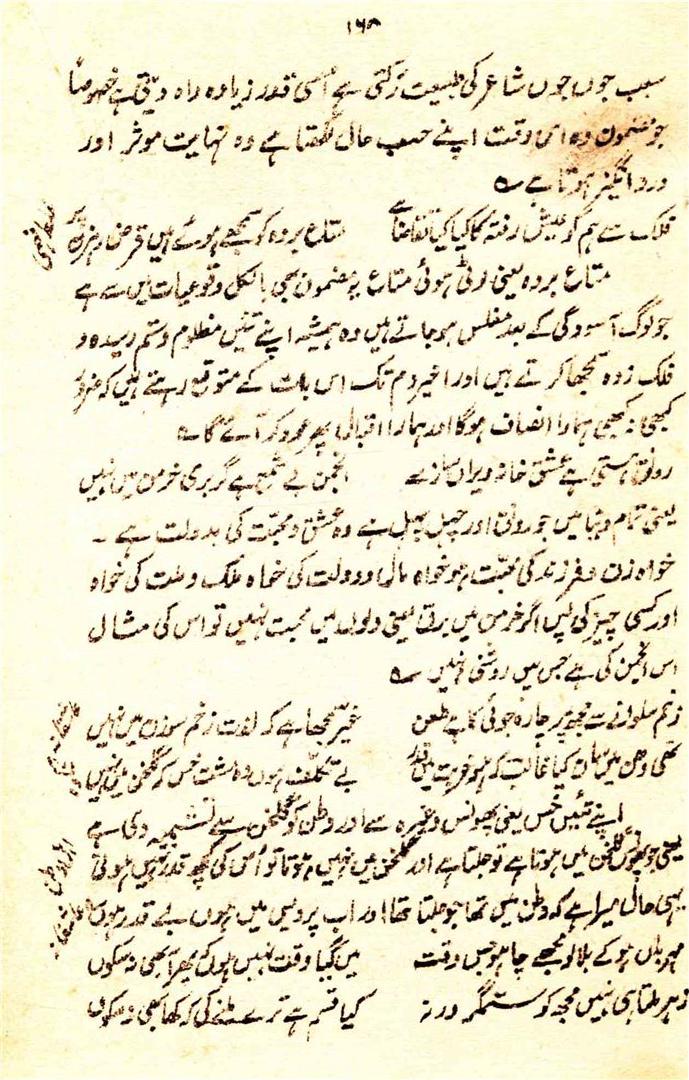 ۱۶۵
سبب جوں جوں شاعر کی طبیعت رکتی ہے اُسی قدر زیادہ راہ دیتی ہے خصوصاً
جو مضمون وہ اس وقت اپنے حسب حال لکھتا ہے وہ نہایت موثر اور
درد انگیز ہوتا ہے ؎
فلک سے ہم کو عیش رفتہ کا کیا کیا تقاضا ہے متاع بردہ کو سمجھے ہوئے ہیں قرض رہزن پر
متاع بردہ یعنی لوٹی ہوئی متاع یہ مضمون بھی بالکل وقوعیات میں سے ہے
جو لوگ آسودگی کے بعد مفلس ہو جاتے ہیں وہ ہمیشہ اپنے تئیں مظلوم و ستم رسیدہ و
فلک زدہ سمجھا کرتے ہیں اور اخیر دم تک اس بات کے متوقع رہتے ہیں کہ ضرور
کبھی نہ کبھی ہمارا انصاف ہوگا اور ہمارا اقبال پھر عود کر آئے گا ؎
رونق ہستی ہے عشق خانہ ویراں ساز سے انجمن بے شمع ہے گر برق خرمن میں نہیں
یعنی تمام دنیا میں جو رونق اور چہل پہل ہے وہ عشق و محبت کی بدولت ہے ۔
خواہ زن و فرزند کی محبت ہو خواہ مال و دولت کی خواہ ملک و ملت کی خواہ
اور کسی چیز کی پس اگر خرمن میں برق یعنی دلوں میں محبت نہیں تو اس کی مثال
اس انجمن کی ہے جس میں روشنی نہیں ؎
زخم سلوانے سے مجھ پر چارہ جوئی کا ہے طعن غیر سمجھا ہے کہ لذت زخم سوزن میں نہیں
تھی وطن میں شان کیا غالب کہ ہو غربت میں قدر بے تکلف ہوں وہ مشت خس کہ گلخن میں نہیں
اپنے تئیں خس یعنی پھونس وغیرہ سے اور وطن کو گلخن سے تشبیہ دی ہے
یعنی جو پھونس گلخن میں ہوتا ہے تو جلتا ہے اور گلخن میں نہیں ہوتا تو اُس کی کچھ قدر نہیں ہوتی
یہی حال میرا ہے کہ وطن میں تھا جو جلتا تھا اور اب پردیس میں ہوں بے قدر ہوں
مہرباں ہو کے بلا لو مجھے چاہو جس وقت میں گیا وقت نہیں ہوں کہ پھر آ بھی نہ سکوں
زہر ملتا ہی نہیں مجھ کو ستمگر ورنہ کیا قسم ہے ترے ملنے کی کہ کھا بھی نہ سکوں